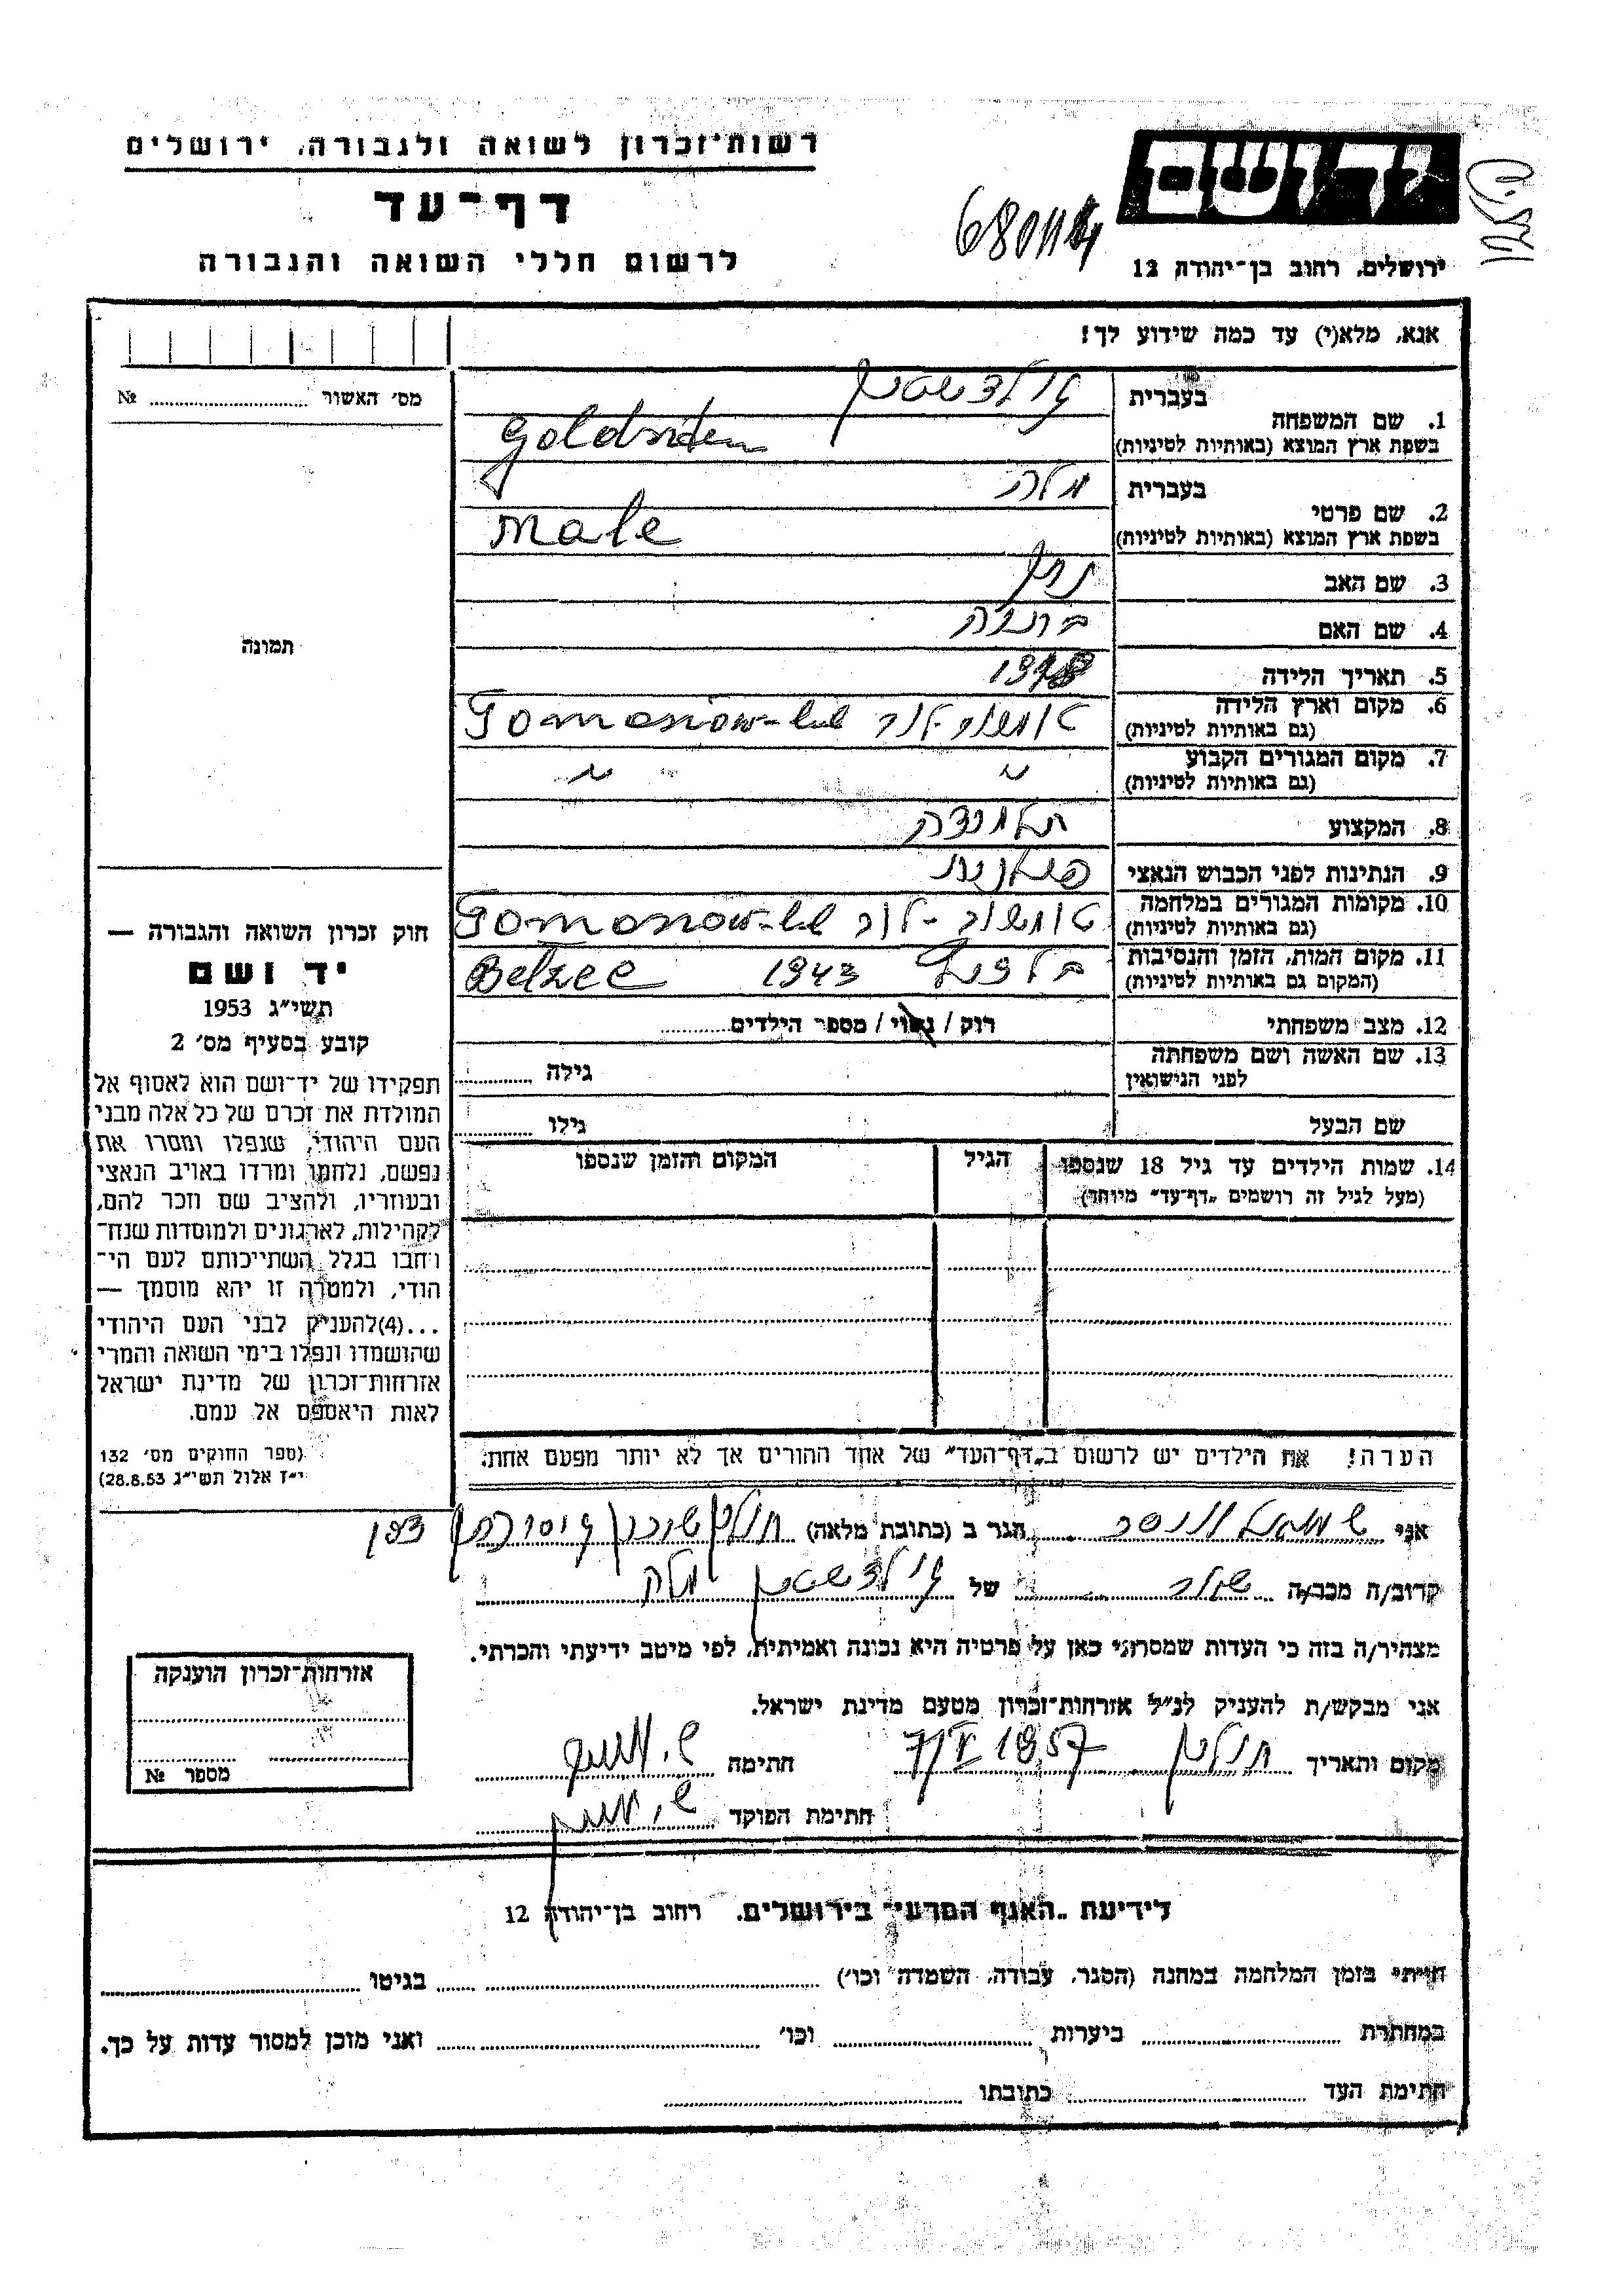 רשות־זכרון לשואה ולגבורה, ירושלים
דף־עד
לרשום חללי השואה והגבורה
יד ושם
ירושלים, רחוב בן־יהודה 12
אנא, מלא(י) עד כמה שידוע לך!
מס׳ האשור № 
1. שם המשפחה
בעברית גולדשטין
בשפת ארץ המוצא (באותיות לטיניות) Goldstein
2. שם פרטי
בעברית מלה
בשפת ארץ המוצא (באותיות לטיניות) Male
3. שם האב נתן
4. שם האם
5. תאריך הלידה
6. מקום וארץ הלידה
(גם באותיות לטיניות) טומשוב-לוב Tomaszow-Lub
7. מקום המגורים הקבוע
(גם באותיות לטיניות) " "
8. המקצוע תלמידה
9. הנתינות לפני הכבוש הנאצי פולנית
10. מקומות המגורים במלחמה
(גם באותיות לטיניות) טומשוב-לוב Tomaszow-Lub
11. מקום המות, הזמן והנסיבות
(המקום גם באותיות לטיניות) בלזץ 1943 Belzec
12. מצב משפחתי רוק / נשוי / מספר הילדים
13. שם האשה ושם משפחתה
לפני הנישואין
גילה
שם הבעל
גילו
14. שמות הילדים עד גיל 18 שנספו
(מעל לגיל זה רושמים „דף־עד” מיוחד)
הגיל
המקום והזמן שנספו
הערה! את הילדים יש לרשום ב„דף־העד” של אחד ההורים אך לא יותר מפעם אחת.
תמונה
חוק זכרון השואה והגבורה —
יד ושם
תשי״ג 1953
קובע בסעיף מס׳ 2
תפקידו של יד־ושם הוא לאסוף אל
המולדת את זכרם של כל אלה מבני
העם היהודי, שנפלו ומסרו את
נפשם, נלחמו ומרדו באויב הנאצי
ובעוזריו, ולהציב שם וזכר להם,
לקהילות, לארגונים ולמוסדות שנח־
רבו בגלל השתייכותם לעם הי־
הודי, ולמטרה זו יהא מוסמך —
...(4) להעניק לבני העם היהודי
שהושמדו ונפלו בימי השואה והמרי
אזרחות־זכרון של מדינת ישראל
לאות היאספם אל עמם.
(ספר החוקים מס׳ 132
י״ז אלול תשי״ג 28.8.53)
אני שמואל הגר ב (כתובת מלאה) חולון שיכון
קרוב/ה מכר/ה של גולדשטין מלה
מצהיר/ה בזה כי העדות שמסרתי כאן על פרטיה היא נכונה ואמיתית, לפי מיטב ידיעתי והכרתי.
אני מבקש/ת להעניק לנ״ל אזרחות־זכרון מטעם מדינת ישראל.
מקום ותאריך חולון 7/V 1957 חתימה
חתימת הפוקד
אזרחות־זכרון הוענקה
מספר №
לידיעת „האגף המדעי” בירושלים, רחוב בן־יהודה 12
הייתי בזמן המלחמה במחנה (הסגר, עבודה, השמדה וכו׳) בגיטו
במחתרת ביערות וכו׳ ואני מוכן למסור עדות על כך.
חתימת העד כתובתו